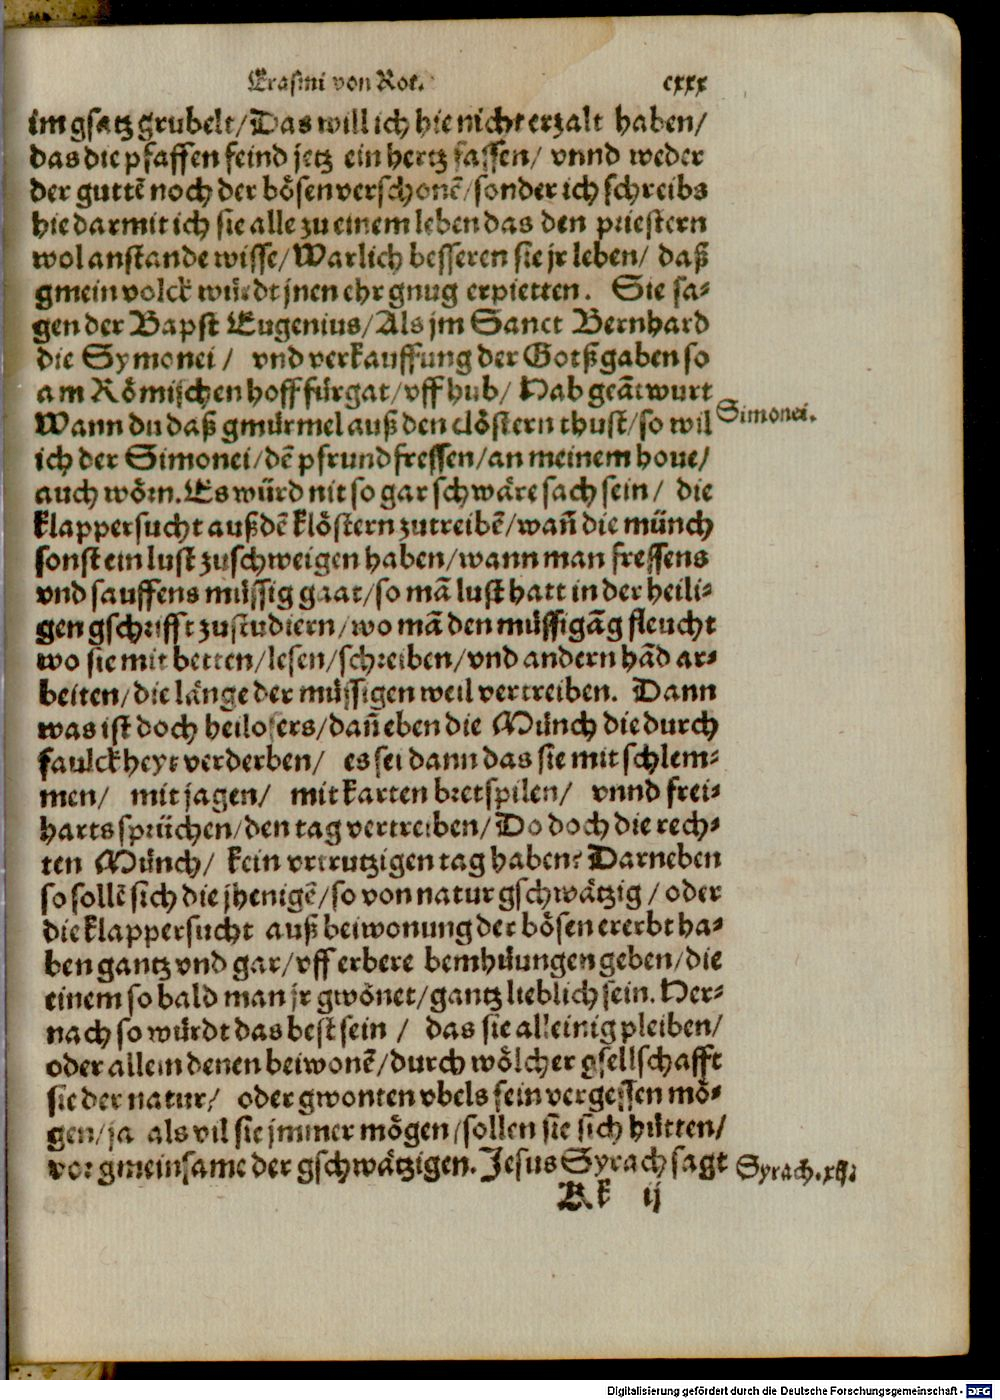 Erasmi von Rot.
cxxx
im gsatz grubelt/Das will ich hie nicht erzalt haben/
das die pfaffen feind jetz ein hertz fassen/ vnnd weder
der guttē noch der bösen verschonē/sonder ich schreibs
hie darmit ich sie alle zu einem leben das den priestern
wol anstande wisse/Warlich besseren sie jr leben/ daß
gmein volck würdt jnen ehr gnug erpietten. Sie sa-
gen der Bapst Eugenius/Als jm Sanct Bernhard
die Symonei/ vnd verkauffung der Gotßgaben so
am Römischen hoff fürgat/vff hub/ Hab geātwurt
Wann du daß gmürmel auß den clöstern thust/so wil
Simonei.
ich der Simonei/dē pfrundfressen/an meinem houe/
auch wörn. Es würd nit so gar schwäre sach sein/ die
klappersucht auß dē klöstern zutreibē/wañ die münch
sonst ein lust zuschweigen haben/wann man fressens
vnd sauffens müssig gaat/so mā lust hatt in der heili-
gen gschrifft zustudiern/wo mā den müssigāg fleucht
wo sie mit betten/lesen/schreiben/vnd andern hād ar-
beiten/die länge der müssigen weil vertreiben. Dann
was ist doch heilosers/dañ eben die Münch die durch
faulckheyt verderben/ es sei dann das sie mit schlem-
men/ mit jagen/ mit karten bretspilen/ vnnd frei-
harts sprüchen/den tag vertreiben/Do doch die rech-
ten Münch/ kein vrtrutzigen tag haben? Darneben
so sollē sich die jhenigē/so von natur gschwätzig/oder
die klappersucht auß beiwonung der bösen ererbt ha-
ben gantz vnd gar/vff erbere bemhüungen geben/die
einem so bald man jr gwönet/gantz lieblich sein. Her-
nach so würdt das best sein/ das sie alleinig pleiben/
oder allein denen beiwonē/durch wölcher gsellschafft
sie der natur/ oder gwonten vbels fein vergessen mö-
gen/ja als vil sie jmmer mögen/sollen sie sich hütten/
vor gmeinsame der gschwätzigen. Jesus Syrach sagt
Syrach.
Kk ij
Digitalisierung gefördert durch die Deutsche Forschungsgemeinschaft - DFG